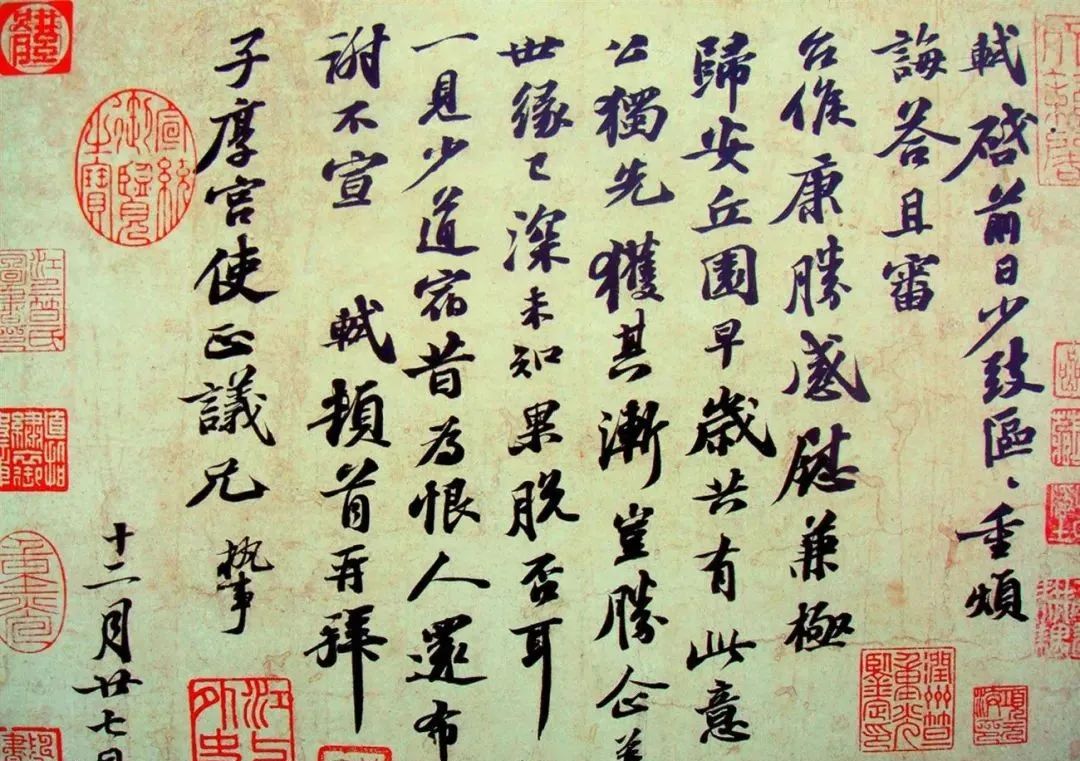 軾啓前日少致區〻重煩
誨答且審
台候康勝感慰兼極
歸安丘園早歲共有此意
公獨先獲其漸豈勝企羨
世緣已深未知果脫否耳
一見少道宿昔爲恨人還布
謝不宣 軾頓首再拜
子厚宮使正議兄執事
十二月廿七日